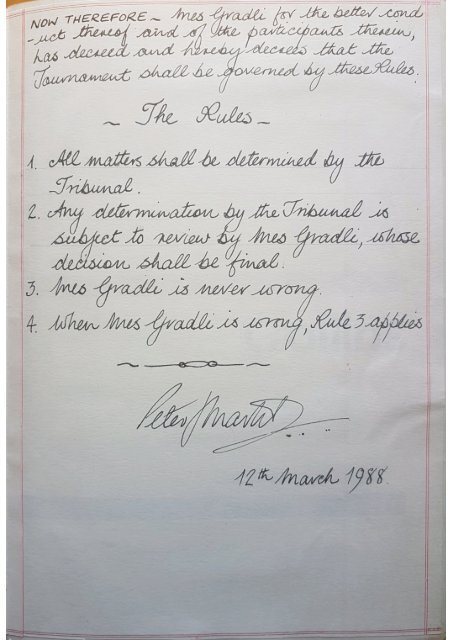 NOW THEREFORE ~ Mes Gradli for the better cond
-uct thereof and of the participants therein,
has decreed and hereby decrees that the
Tournament shall be governed by these Rules.
~ The Rules ~
1. All matters shall be determined by the
Tribunal.
2. Any determination by the Tribunal is
subject to review by Mes Gradli, whose
decision shall be final.
3. Mes Gradli is never wrong.
4. When Mes Gradli is wrong, Rule 3 applies
Peter J Martin
12th March 1988.